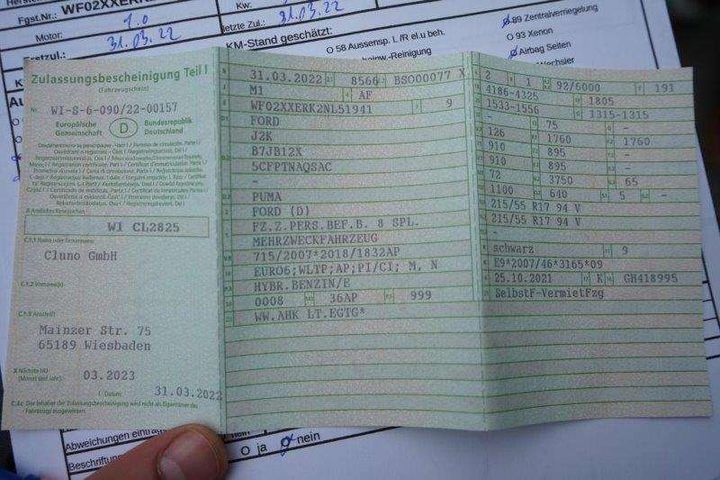 Fgst.Nr.: WF02XXER
Kw:
Motor: 1.0
letzte Zul.: 31.03.22
31.03.22
KM-Stand geschätzt:
O 58 Aussensp. L /R el.u beh.
89 Zentralverriegelung
O 93 Xenon
Airbag Seiten
Zulassungsbescheinigung Teil I
(Fahrzeugschein)
Nr. WI-S-6-090/22-00157
Europäische Gemeinschaft
D
Bundesrepublik Deutschland
Amtliches Kennzeichen
WI CL2825
C.1.1 Name oder Firmenname
Cluno GmbH
C.1.2 Vorname(n)
C.1.3 Anschrift
Mainzer Str. 75
65189 Wiesbaden
Nächste HU
(Monat und Jahr)
03.2023
I Datum:
31.03.2022
C.4c Der Inhaber der Zulassungsbescheinigung wird nicht als Eigentümer des Fahrzeugs ausgewiesen.
31.03.2022 8566 BSO00077 X
M1 AF
WF02XXERK2NL51941 9
FORD
J2K
B7JB12X
5CFPTNAQSAC
-
PUMA
FORD (D)
FZ.Z.PERS.BEF.B. 8 SPL.
MEHRZWECKFAHRZEUG
715/2007*2018/1832AP
EURO6;WLTP;AP;PI/CI; M, N
HYBR.BENZIN/E
0008 36AP 999
WW.AHK LT.EGTG*
2 1 92/6000 191
4186-4325 1805
1533-1556 1315-1315
75 -
126 1760 1760
910 895 -
910 895 -
72 3750 65
1100 640 5 -
215/55 R17 94 V
215/55 R17 94 V
-
schwarz 9
E9*2007/46*3165*09
25.10.2021 K GH418995
SelbstF-VermietFzg
Abweichungen
Beschriftun
O ja O nein